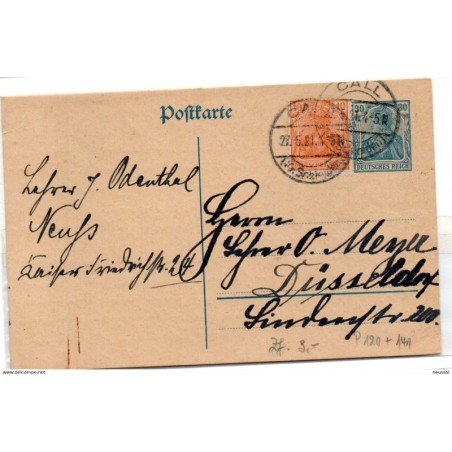 Postkarte
CALL
10
30
30
27.5.21. 4-5N
DEUTSCHES REICH
Lehrer J. Odenthal
Neuß
Kaiser Friedrichstr. 24
Herrn
Lehrer O. Meyer
Düsseldorf
Lindenstr 200.
Zf. 3,-
P 120 + 141
www.delcampe.net
neussal